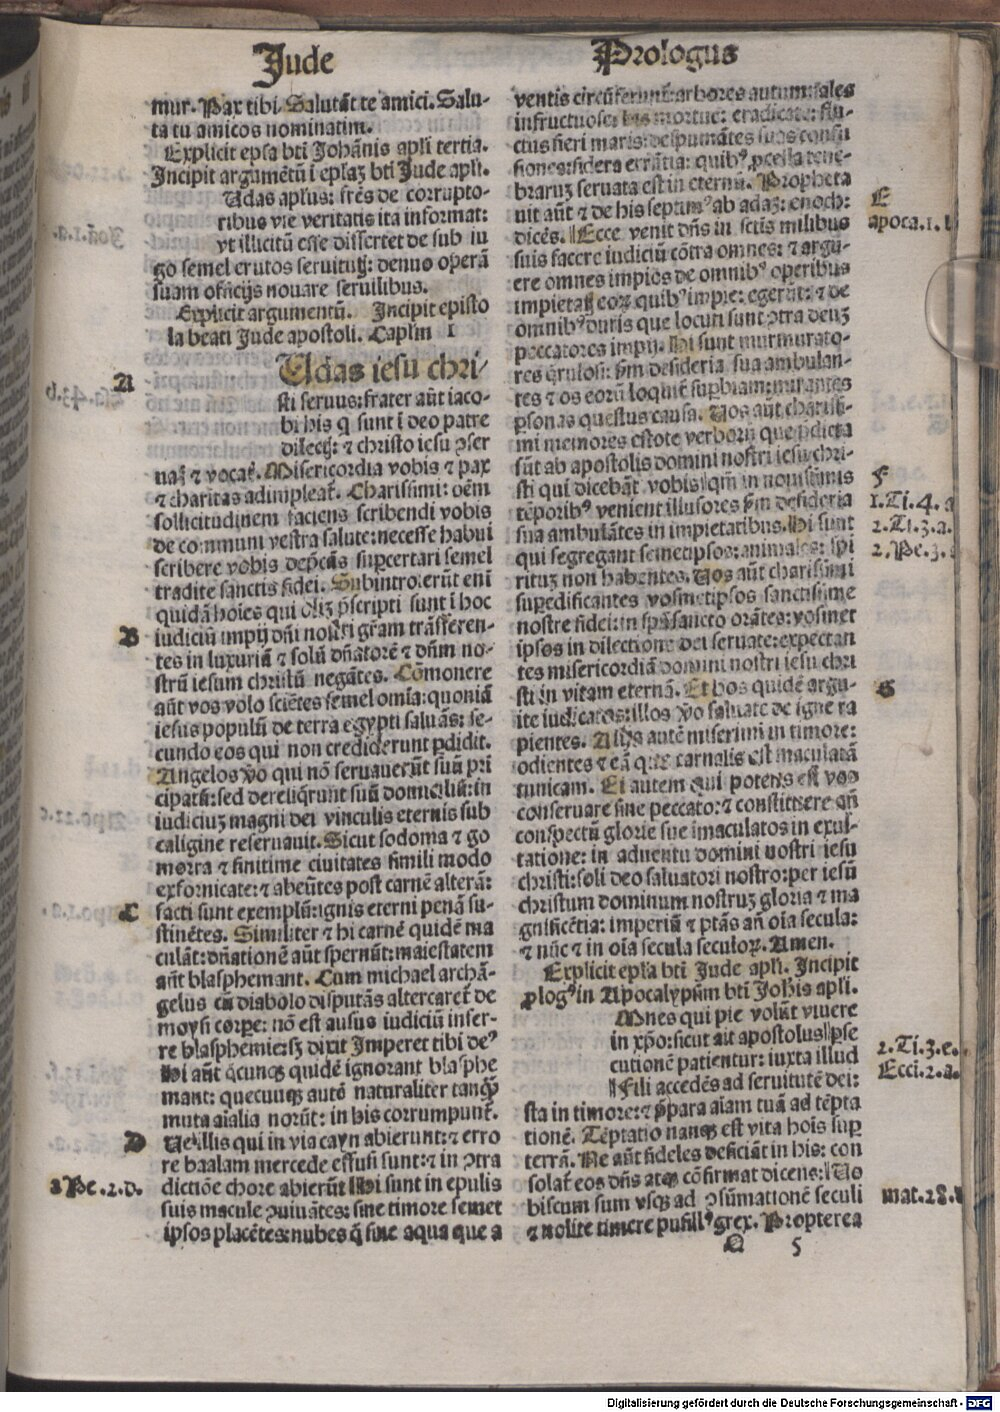 Jude
mur. Pax tibi. Salutāt te amici. Salu-
ta tu amicos nominatim.
Explicit epſa bti Johānis apli tertia.
Incipit argumētū ī eplaȝ bti Jude apli.
Udas aplus: frēs de corrupto-
ribus vie veritatis ita informat:
vt illicitū eſſe diſſertet de ſub iu
go ſemel erutos ſeruitutꝭ: denuo operā
ſuam officijs nouare ſeruilibus.
Explicit argumentū. Incipit epiſto
la beati Jude apostoli. Caplm I
A
Udas ieſu chri/
ſti ſeruus: frater aūt iaco-
bi his q̄ ſunt ī deo patre
dilectꝭ: ⁊ chriſto ieſu ↄſer
uatꝭ ⁊ vocat̄. Miſericordia vobis ⁊ pax
⁊ charitas adimpleat̄. Chariſſimi: oēm
ſollicitudinem faciens ſcribendi vobis
de communi veſtra ſalute: neceſſe habui
ſcribere vobis dep̄cās ſuꝑcertari ſemel
tradite ſanctis fidei. Subintroierūt eni
quidā hoīes qui olīȝ p̄ſcripti ſunt ī hoc
B
iudiciū impij: dn̄i noſtri gr̄am trāſferen-
tes in luxuriā ⁊ ſolū dn̄atorē ⁊ dn̄m no-
ſtrū ieſum chriſtū negātes. Cōmonere
aūt vos volo ſciētes ſemel omīa: quoniā
ieſus populū de terra egypti ſaluās: ſe-
cundo eos qui non crediderunt ꝑdidit.
Angelos v̄o qui nō ſeruauerūt ſuū pri
cipatū: ſed dereliq̄runt ſuū domiciliū: in
iudiciuȝ magni dei vinculis eternis ſub
caligine reſeruauit. Sicut ſodoma ⁊ go
morra ⁊ finitime ciuitates ſimili modo
exfornicate: ⁊ abeūtes poſt carnē alterā:
C
facti ſunt exemplū: ignis eterni penā ſu-
ſtinētes. Similiter ⁊ hi carnē quidē ma
culāt: dn̄ationē aūt ſpernūt: maieſtatem
aūt blaſphemant. Cum michael archā-
gelus cū diabolo diſputās altercaret̄ de
moyſi corpe: nō eſt auſus iudiciū infer-
re blaſphemie: ſȝ dixit Imperet tibi deꝰ
Hi aūt q̄cunqȝ quidē ignorant blaſphe
mant: quecunqȝ autē naturaliter tanqȝ
muta aīalia norūt: in his corrumpunt̄.
D
Ue illis qui in via cayn abierunt: ⁊ erro
re baalam mercede effuſi ſunt: ⁊ in ↄtra
2 Pe. 2. d.
dictiōe chore abierūt Hi ſunt in epulis
ſuis macule ↄuiuātes: ſine timore ſemet
ipſos paſcētes: nubes q̄ ſine aqua que a
Prologus
ventis circūferunt̄: arbores autumnales
infructuoſe: bis mortue: eradicate: flu-
ctus fieri maris: deſpumātes ſuas confu
ſiones: ſidera errātia: quibꝰ ꝓcella tene-
braruȝ ſeruata eſt in eternū. Propheta
E
uit aūt ⁊ de his ſeptimꝰ ab adaȝ: enoch:
apoca. 1. b
dicēs. Ecce venit dn̄s in ſctīs milibus
ſuis facere iudiciū cōtra omnes: ⁊ argu-
ere omnes impios de omnibꝰ operibus
impietatꝭ eoꝝ quibꝰ impie: egerūt: ⁊ de
omnibꝰ duris que locuti ſunt ↄtra deuȝ
peccatores impij. Hi ſunt murmurato-
res q̄ruloſi: ſm̄ deſideria ſua ambulan-
tes ⁊ os eorū loquit̄ ſuꝑbiam: mirantes
ꝑſonas queſtus cauſa. Uos aūt chariſſi-
mi memores eſtote verborū que p̄dicta
ſūt ab apoſtolis domini noſtri ieſu chri-
F
ſti qui dicebāt vobis: qm̄ in nouiſſimis
1. Ti. 4. a
tēporibꝰ venient illuſores ſm̄ deſideria
2. Ti. 3. a.
ſua ambulātes in impietatibus. Hi ſunt
2. Pe. 3.
qui ſegregant ſemetipſos: animales: ſpi
rituȝ non habentes. Uos aūt chariſſimi
ſuꝑedificantes voſmetipſos ſanctiſſime
noſtre fidei: in ſpū ſancto orātes: voſmet
ipſos in dilectione dei ſeruate: expectan
tes miſericordiā domini noſtri ieſu chri
G
ſti in vitam eternā. Et hos quidē argu-
ite iudicatos: illos v̄o ſaluate de igne ra
pientes. Alijs autē miſerimi in timore:
odientes ⁊ eā que carnalis eſt maculatā
tunicam. Ei autem qui potens eſt vos
conſeruare ſine peccato: ⁊ conſtituere an̄
conſpectū glorie ſue imaculatos in exul-
tatione: in aduentu domini noſtri ieſu
chriſti: ſoli deo ſaluatori noſtro: per ieſū
chriſtum dominum noſtruȝ gloria ⁊ ma
gnificētia: imperiū ⁊ ptās an̄ oīa ſecula:
⁊ nūc ⁊ in oīa ſecula ſeculoꝝ. Amen.
Explicit epſa bti Jude apli. Incipit
ꝓlogꝰ in Apocalypſm bti Johis apli.
Mnes qui pie volūt viuere
in xp̄o: ſicut ait apoſtolus ꝑſe
2. Ti. 3. e.
cutionē patientur: iuxta illud
Ecci. 2. a.
Fili accedēs ad ſeruitutē dei:
ſta in timore: ⁊ p̄para aīam tuā ad tēpta
tionē. Tēptatio nanqȝ eſt vita hoīs ſuꝑ
terrā. Ne aūt fideles deficiāt in his: con
ſolat̄ eos dn̄s atqȝ cōfirmat dicens: Uo
mat. 28.
biſcum ſum vſqȝ ad ↄſūmationē ſeculi
⁊ nolite timere puſillꝰ grex. Propterea
Q 5
Digitalisierung gefördert durch die Deutsche Forschungsgemeinschaft - DFG